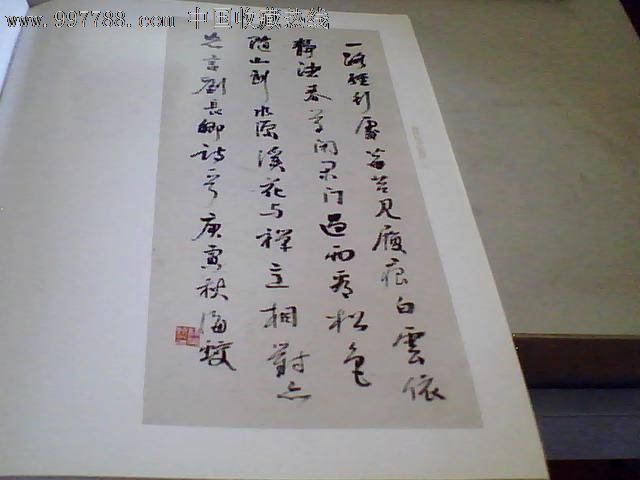 www.997788.com 中国收藏热线
一路經行處莓苔见履痕白雲依
靜渚春草闭閒门過雨看松色
随山到水源溪花与禪意相對亦
忘言劉長卿詩 庚寅秋海